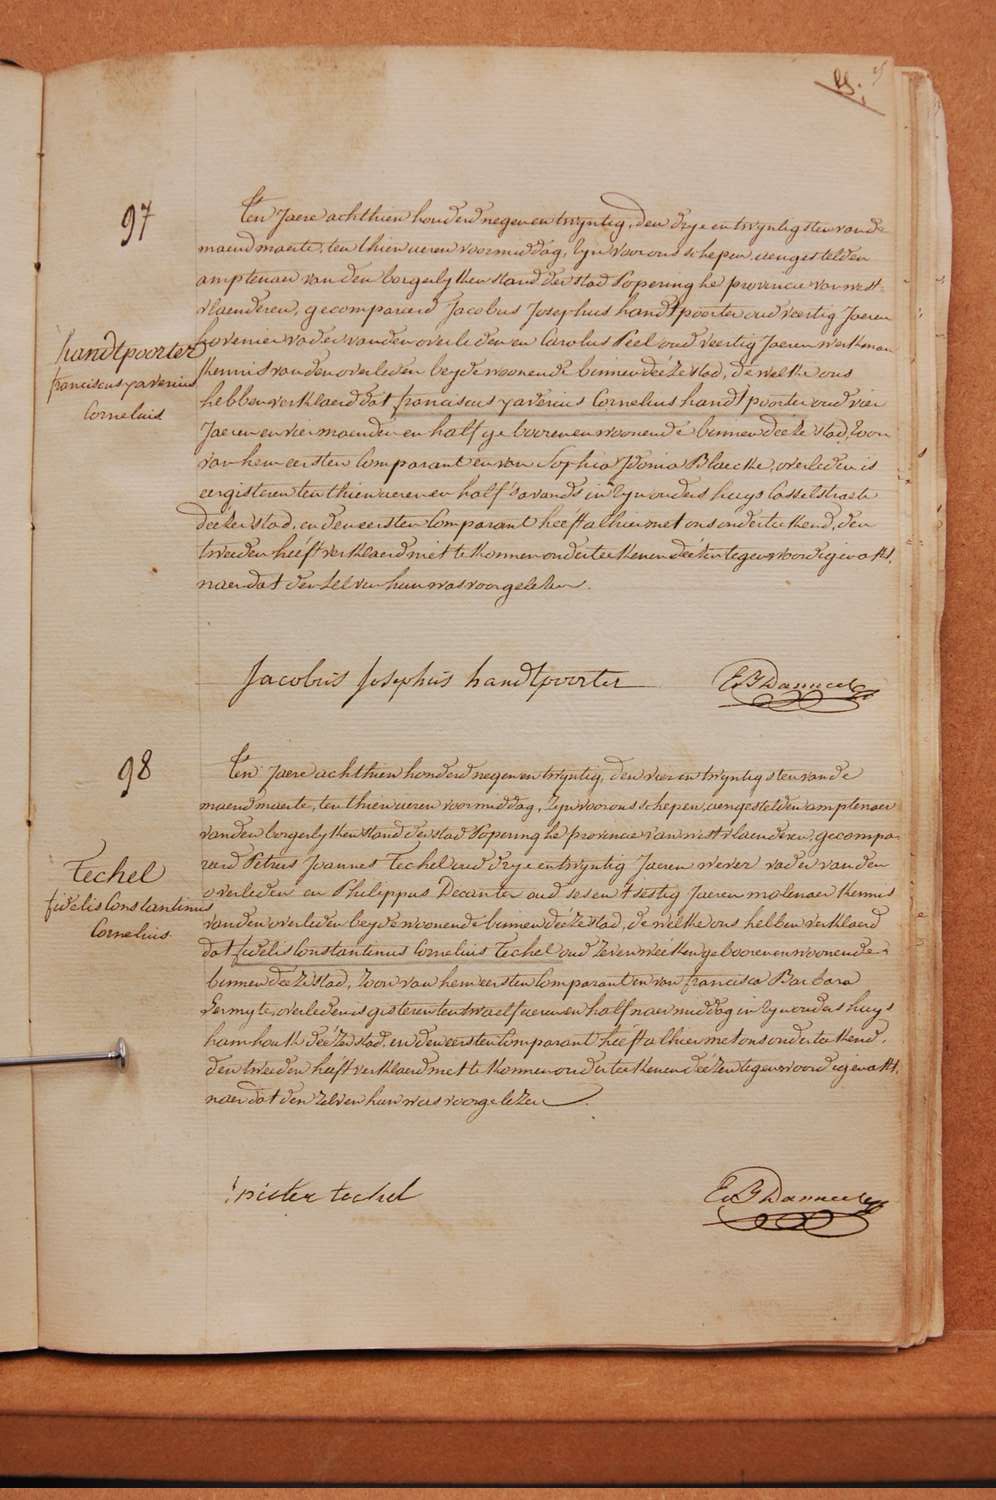 25
97
Ten Jaere achthien honderd negenentwyntig, den drye en twyntigsten vande
maend maerte, ten thien ueren voormiddag, Zyn voor ons schepen, aengestelden
amptenaer van den borgerlyken stand der stad Poperinghe provincie van west-
vlaenderen, gecompareerd Jacobus Josephus handtpoorter oud veertig Jaeren
hovenier vader van den overleden en Carolus Piel oud veertig Jaeren werkman
kennis van den overleden beyde woonende binnen deéze stad, de welke ons
hebben verklaerd dat franciscus xaverius Cornelius handtpoorter oud vier
Jaeren en vier maenden en half geboren en woonende binnen deéze stad, Zoon
van hem eersten Comparant en van Sophia Idonia Blaecke, overleden is
eergisteren ten thien ueren en half 's avands in Zyn ouders huys Casselstraete
deézer stad, en den eersten Comparant heeft alhier met ons onderteekend, den
tweeden heéft verklaerd niet te konnen onderteekenen deézen tegenwoordigen akt,
naer dat den Zelven hun was voorgelezen.
handtpoorter
franciscus xaverius
Cornelius
Jacobus Josephus handtpoorter
98
Ten Jaere achthien honderd negenentwyntig, den vier en twyntigsten vande
maend maerte, ten thien ueren voormiddag, Zyn voor ons schepen, aengestelden amptenaer
van den borgerlyken stand der stad Poperinghe provincie van westvlaenderen, gecompa-
reerd Petrus Joannes Techel oud drye en twyntig Jaeren wever vader van den
overleden en Philippus Decanter oud sesentsestig Jaeren molenaer kennis
van den overleden beyde woonende binnen deéze stad, de welke ons hebben verklaerd
dat fidelis Constantinus Cornelius Techel oud Zeven weéken geboren en woonende
binnen deéze stad, Zoon van hem eersten Comparant en van francisca Barbara
Germyte, overleden is gisteren ten twaelf ueren en half naermiddag in Zyn ouders huys
hamhoek deézer stad, en den eersten Comparant heéft alhier met ons onderteekend,
den tweeden heéft verklaerd niet te konnen onderteekenen deézen tegenwoordigen akt,
naer dat den Zelven hun was voorgelezen.
Techel
fidelis Constantinus
Cornelius
pieter techel